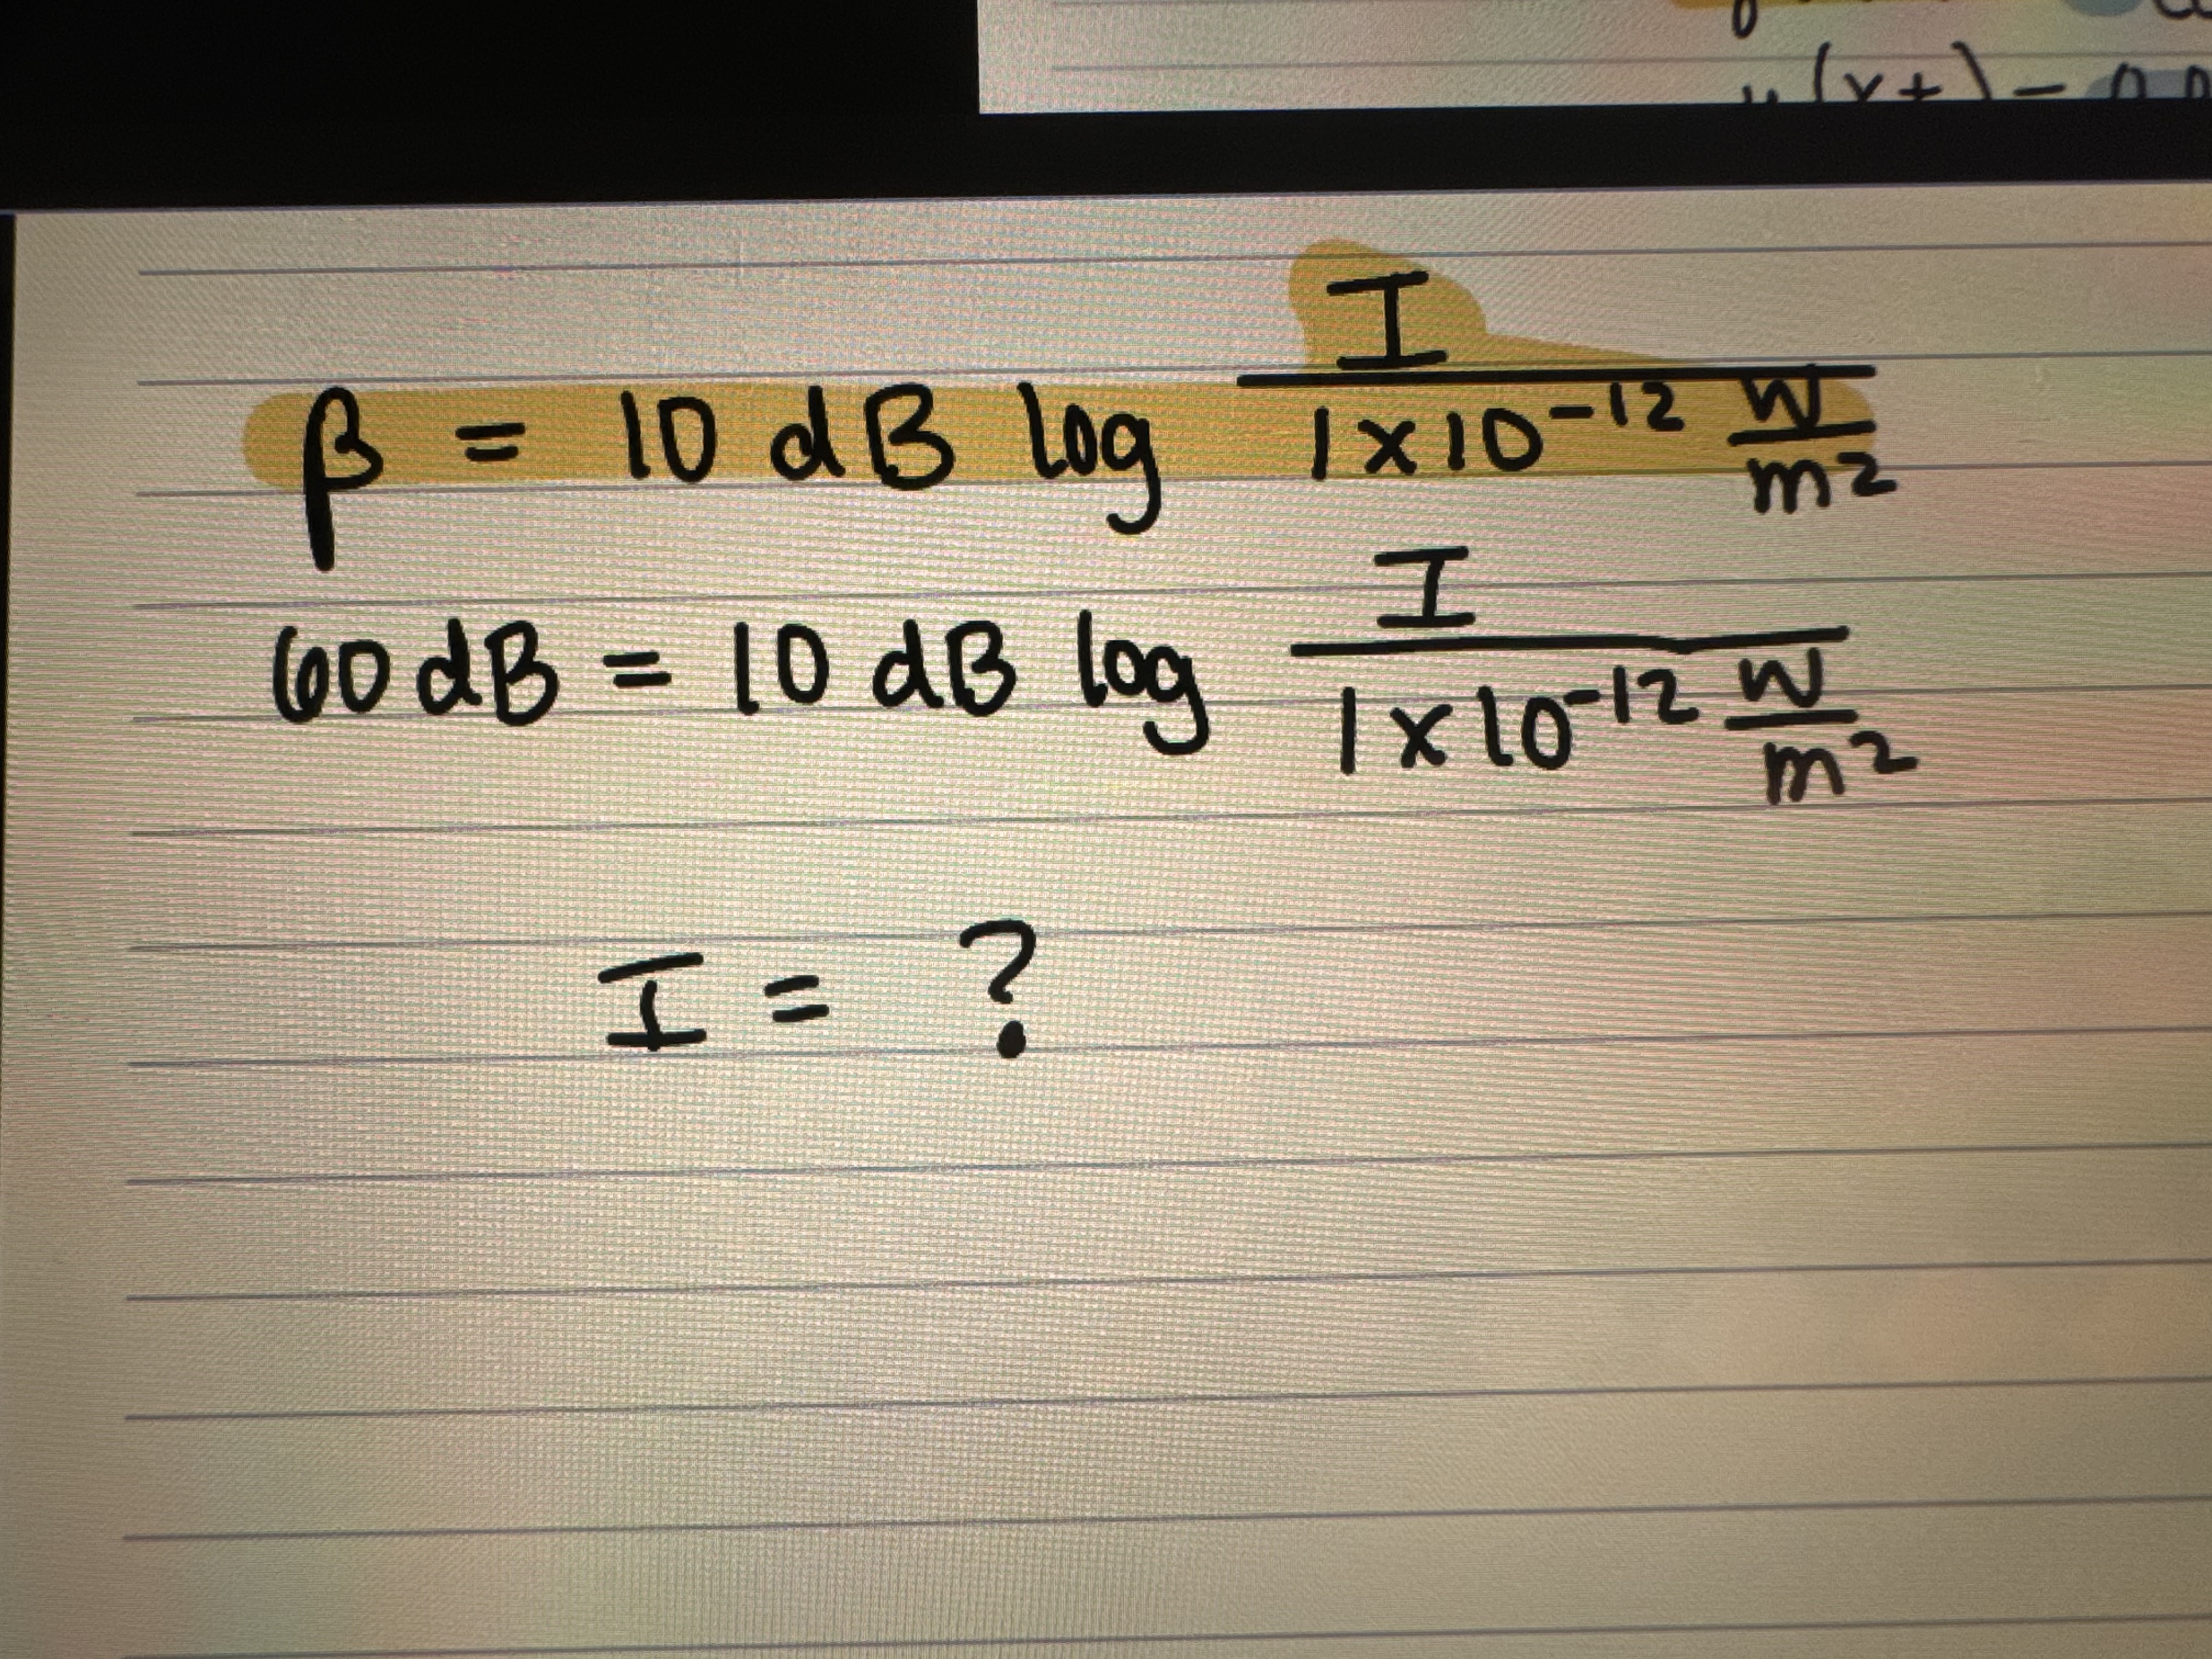 β = 10 dB log I / 1x10⁻¹² W/m²
60 dB = 10 dB log I / 1x10⁻¹² W/m²
I = ?